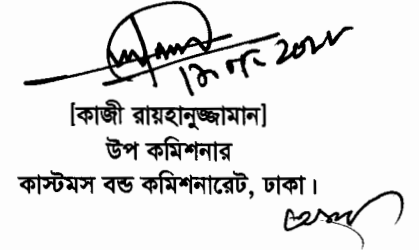 [কাজী রায়হানুজ্জামান]
উপ কমিশনার
কাস্টমস বন্ড কমিশনারেট, ঢাকা।